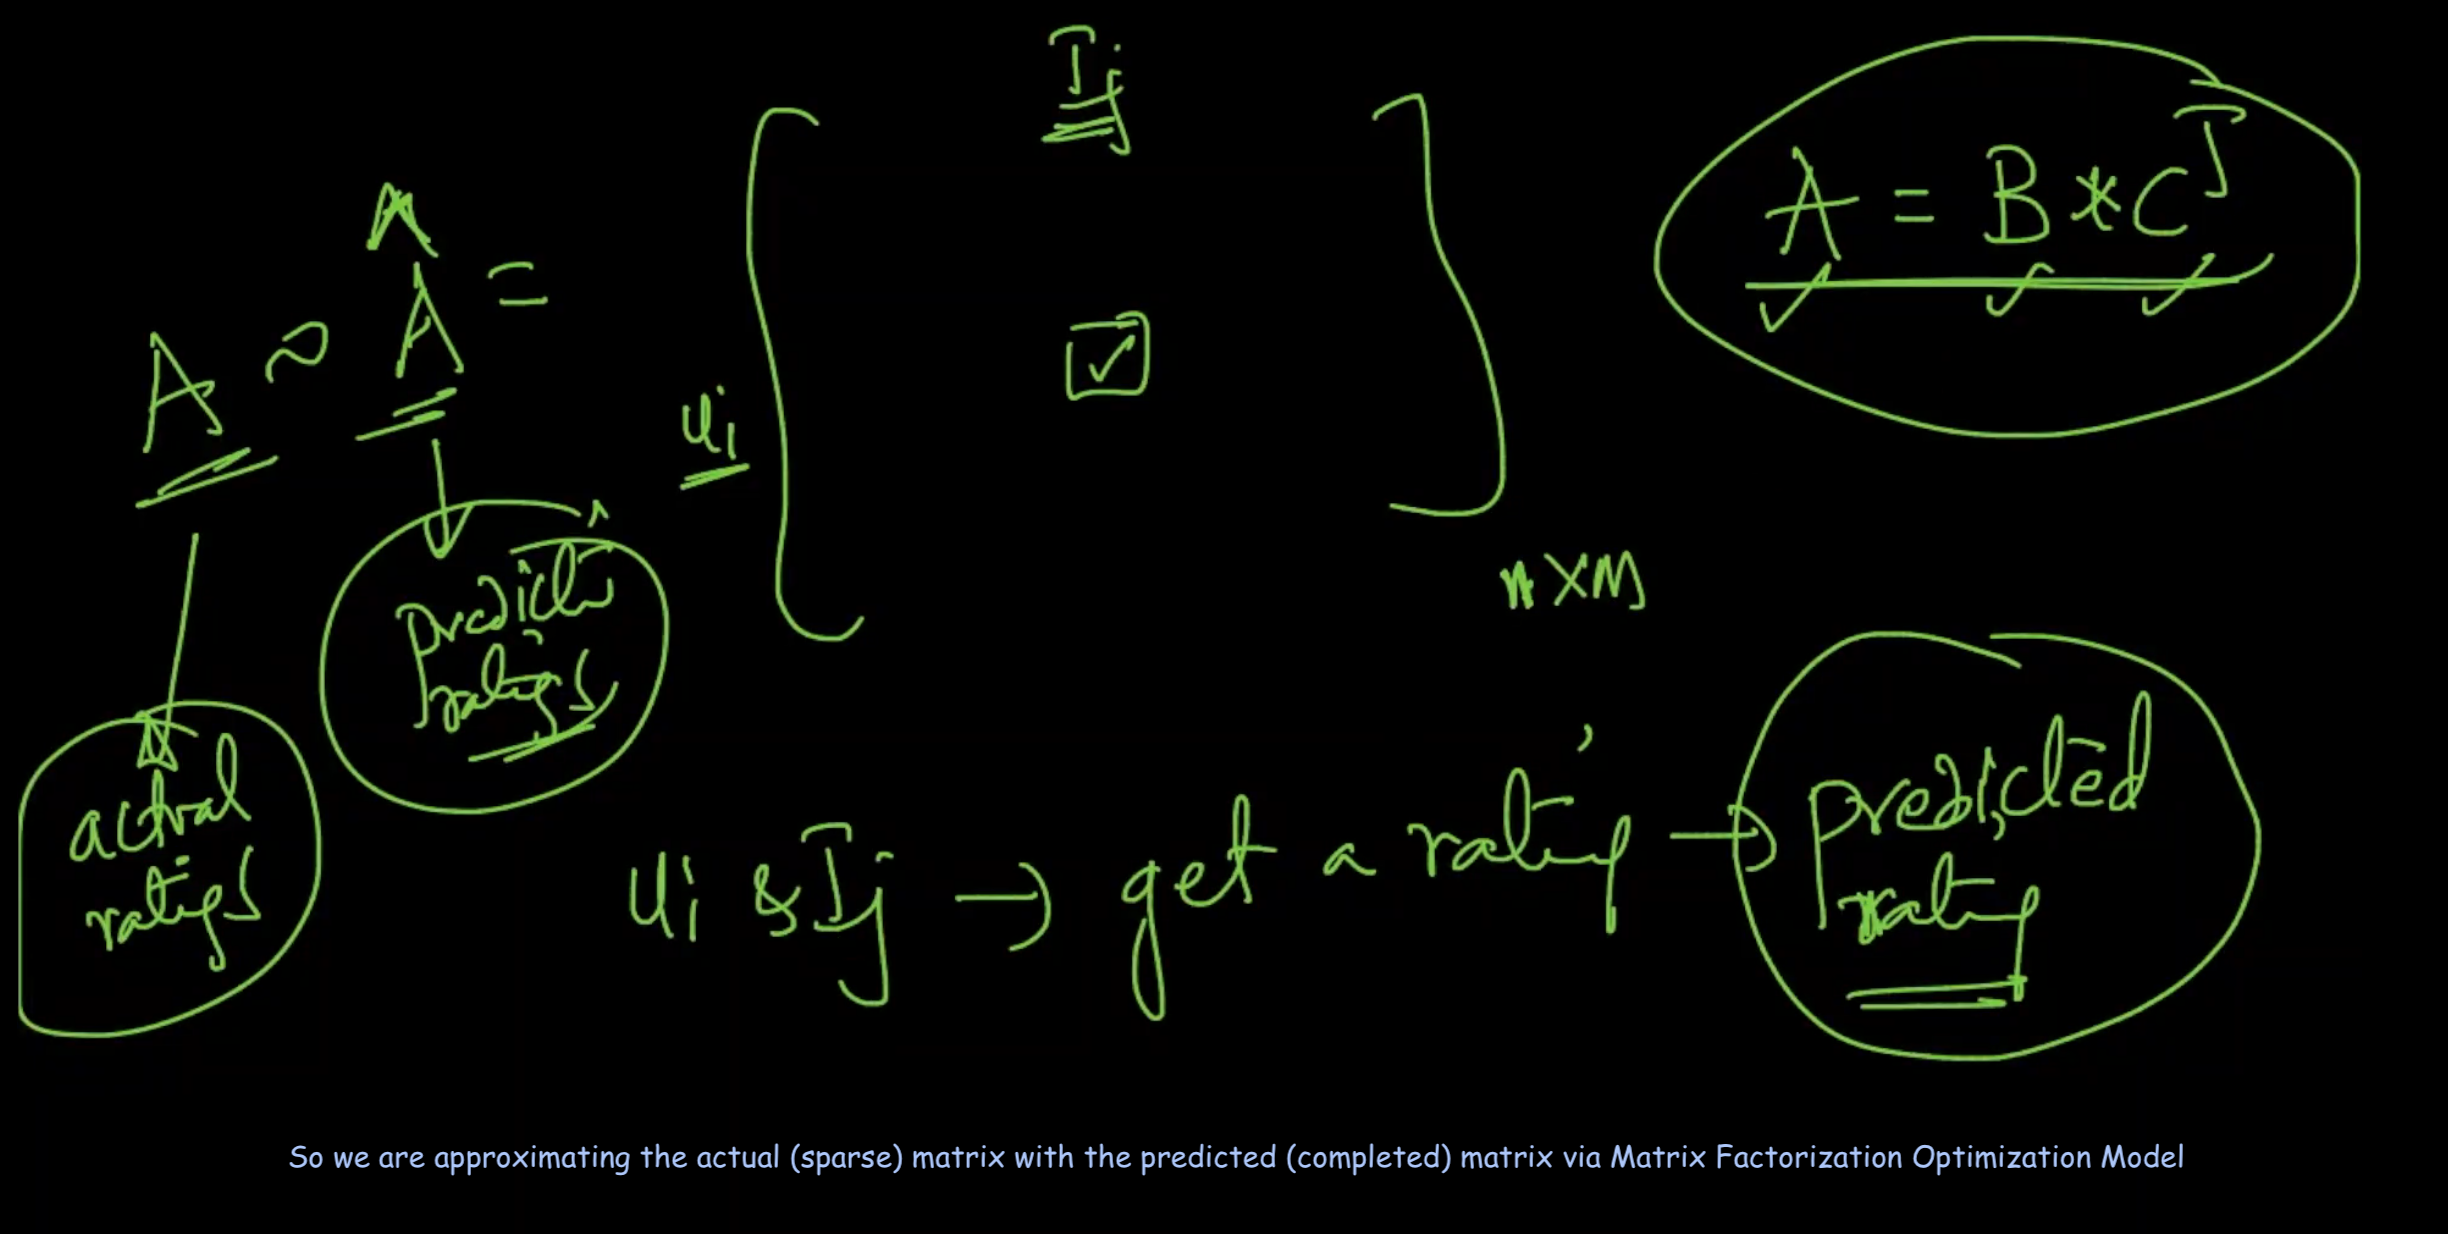 I_j
A ~ Â =
A = B * C^T
u_i
n X M
predicti
ratings
actual
ratings
u_i & I_j → get a rating → predicted
rating
So we are approximating the actual (sparse) matrix with the predicted (completed) matrix via Matrix Factorization Optimization Model